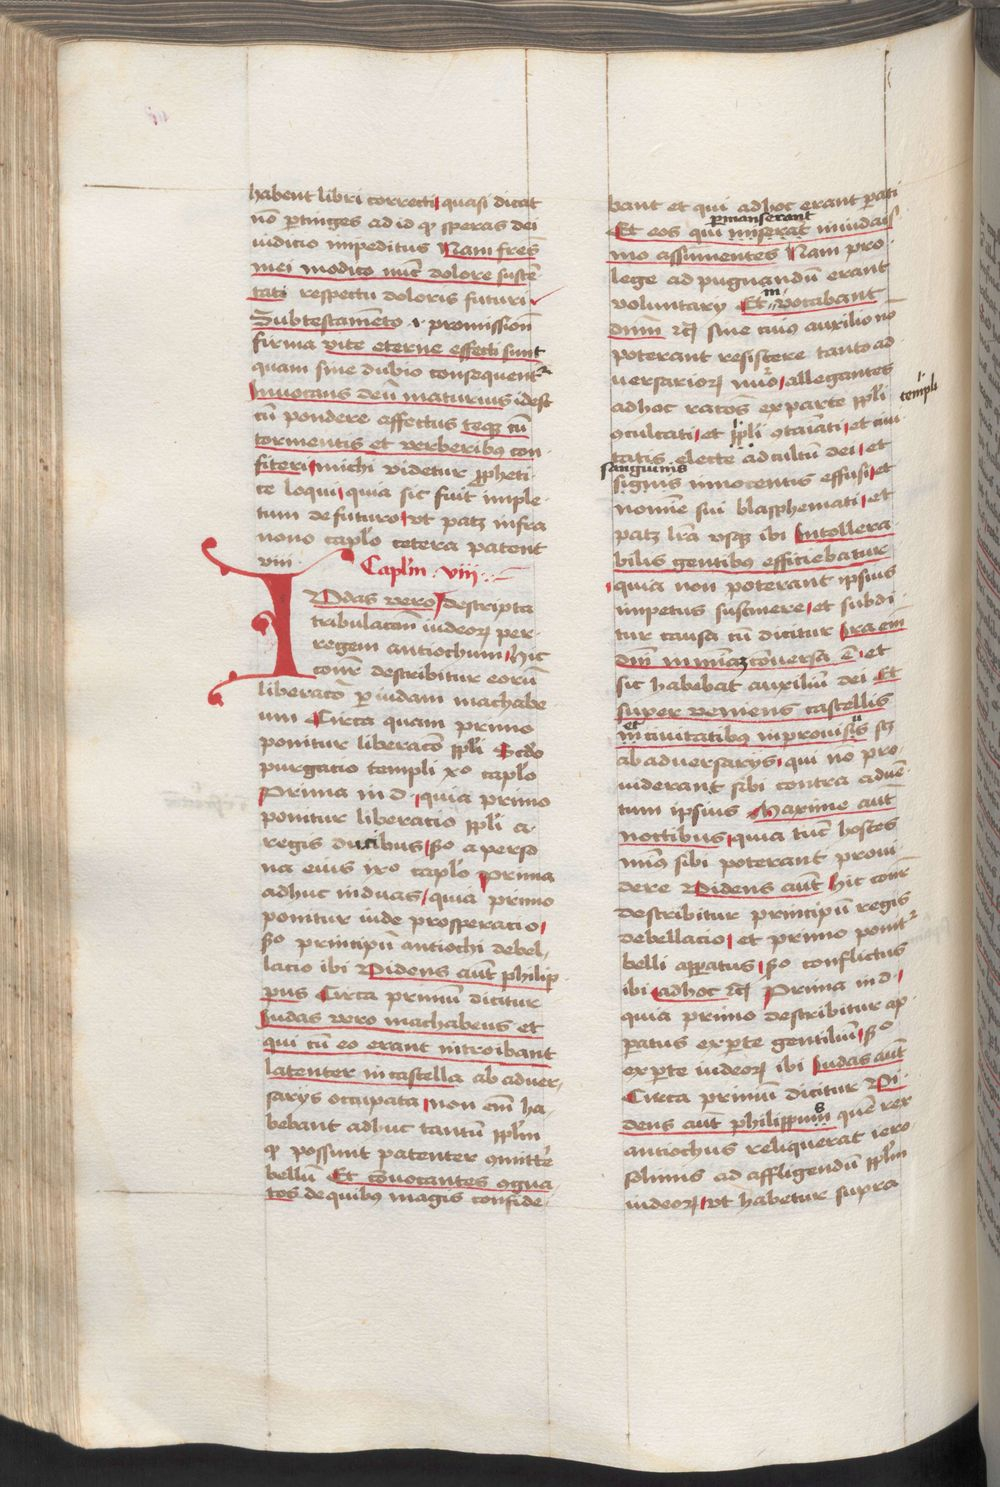 habent libri correcti quasi dicat
nō ꝑtinges ad id qͥ speras dei
iudicio impeditus Nam fres̄
mei modico nūc dolore sustē
tati respectu doloris futuri
Sub testamēto .i. promissiōn
firma vite eterne effecti sunt
quam sine dubio consequentʳ
Invocans deū maturius idest
cū pondere affectus teqꝫ cū
tormentis et verberibꝰ con
fiteri michi videtur ꝓpheti
ce loqui quia sic fuit imple
tum de futuro vt patꝫ infra
nono caplo cetera patent
viii
Caplm̄ . viii .
IVdas vero descripta
tribulacōn iudeoꝝ per
regem antiochum hic
conr̄ describitur eorū
liberacō ꝑ iudam machabe
um Circa quam primo
ponitur liberacō ppl̄i Scd̄o
purgacio templi xº caplo
Prima in d. quia primo
ponitur liberacio ppl̄i a
regis ducibus scd̄o a perso
na eius ixº caplo Prima
adhuc in duas quia primo
ponitur iude prosperacio
scd̄o principū antiochi debel
lacio ibi Videns aūt philip
pus Circa primū dicitur
Iudas vero machabeus et
qui cū eo erant introibant
latenter in castella ab adver
sarys occupata non em̄ ha
bebant adhuc tantū ppl̄m
qͥ possunt patenter ꝯmittē
bellū Et cōuocantes ꝯgna
tos de quibꝰ magis confide
bant et qui ad hoc erant ꝑati
ꝑmanserant
Et eos qui miserāt in iudais
mo assumentes Nam pro
lege ad pugnandū erant
voluntary Et in uocabant
dnm̄ ⁊c̄ sine cuiꝰ auxilio nō
poterant resistere tanto ad
uersarioꝝ nūo allegantes
ad hoc racōs ex parte ppl̄i
ꝯculcati et ppl̄i ꝯtaīati et ciui
templi
tatis electe ad cultū dei et
sanguinis
signis innocentis effusi et
nomīe sui blasphemati et
patꝫ lr̄a vsqꝫ ibi Intollera
bilis gentibꝰ efficiebatur
quia non poterant ipsius
impetus sustinere et subdi
tur causa cū dicitur Ira em̄
dm̄ in mīaꝫ cōuersa ē et
sic habebat auxiliū dei Et
super veniens castellis
et
in ciuitatibꝰ inprouisus scꝫ
ab adversarys qui nō pro
uiderant sibi contra aduē
tum ipsius Maxime aūt
noctibus quia tūc hostes
minꝰ sibi poterant proui
dere Videns aūt Hic conr̄
describitur principū regis
debellacio et primo ponitʳ
belli apparatus scd̄o conflictus
ibi ad hoc ⁊c̄ Prima in d.
quia primo describitur ap
paratus ex ꝑte gentiliū scd̄o
ex ꝑte iudeoꝝ ibi Iudas aūt
Circa primū dicitur Vi
dens aūt philippus quē rex
antiochus reliquerat iero
solimis ad affligendū ppl̄m
iudeoꝝ vt habetur supra